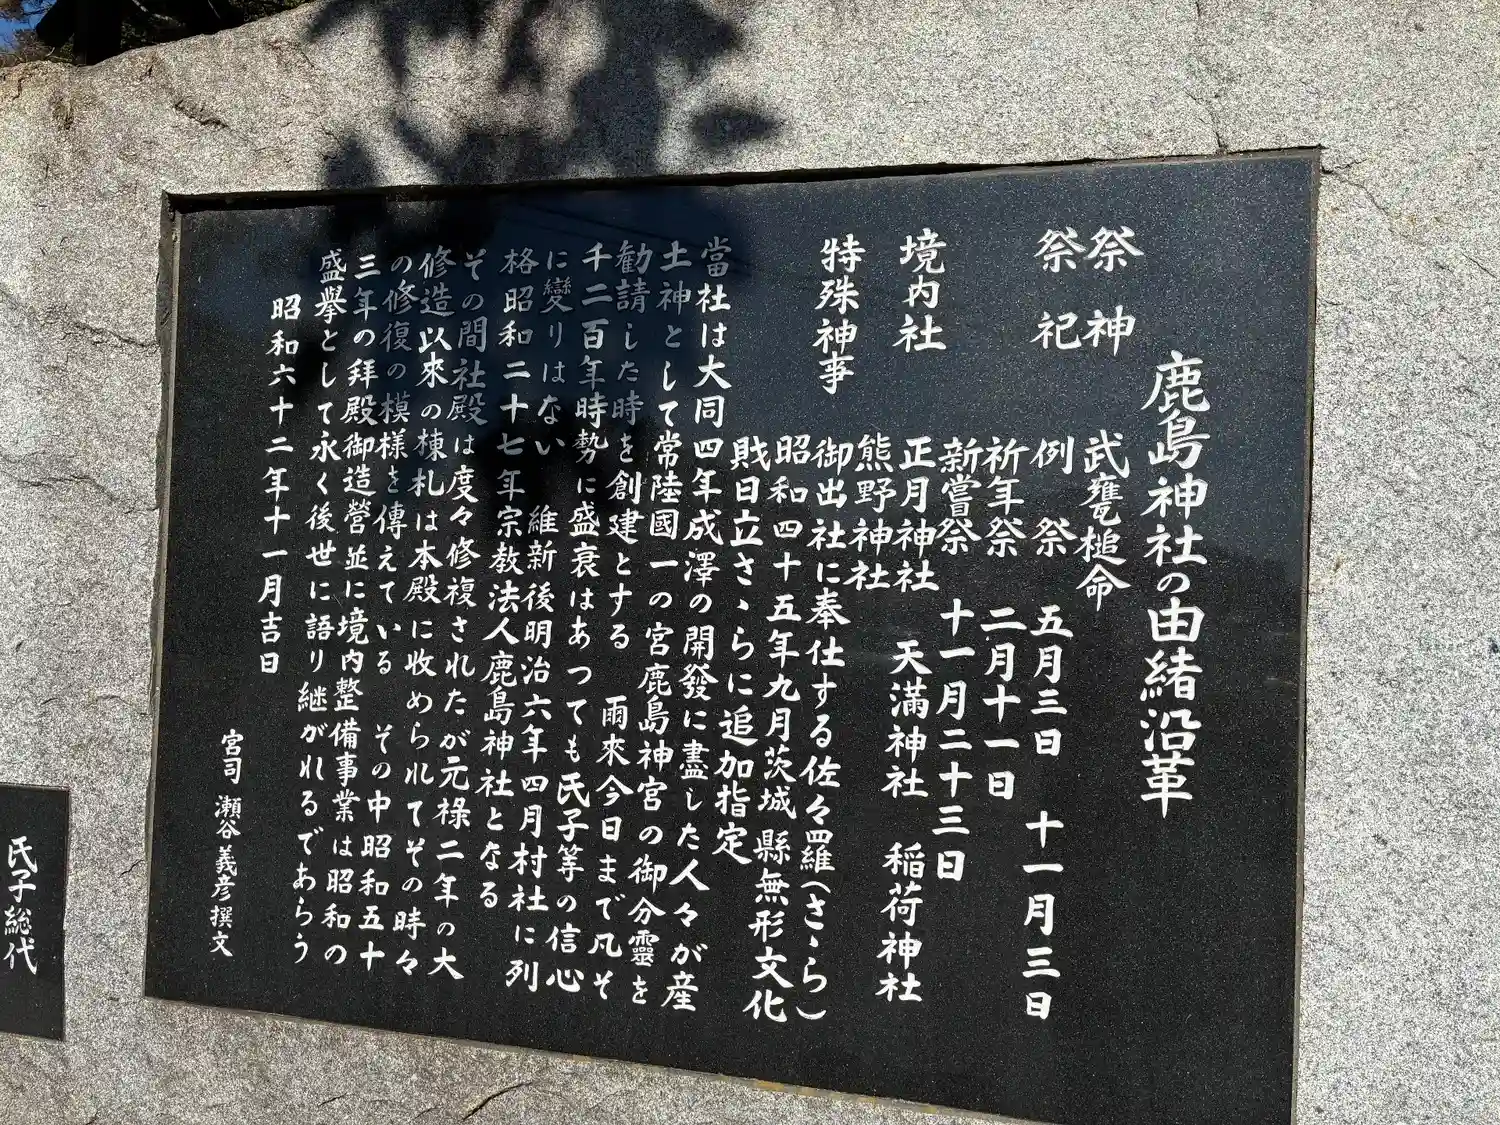 鹿島神社の由緒沿革
祭神 武甕槌命
祭祀 例祭 五月三日 十一月三日
祈年祭 二月十一日
新嘗祭 十一月二十三日
境内社 正月神社 天満神社 稲荷神社
熊野神社
特殊神事 御出社に奉仕する佐々羅(さゝら)
昭和四十五年九月茨城縣無形文化
財日立さゝらに追加指定
當社は大同四年成澤の開發に盡した人々が産
土神として常陸國一の宮鹿島神宮の御分靈を
勸請した時を創建とする 雨來今日まで凡そ
千二百年時勢に盛衰はあつても氏子等の信心
に變りはない 維新後明治六年四月村社に列
格昭和二十七年宗教法人鹿島神社となる
その間社殿は度々修複されたが元禄二年の大
修造以來の棟札は本殿に收められてその時々
の修復の模様を傳えている その中昭和五十
三年の拜殿御造營並に境内整備事業は昭和の
盛擧として永く後世に語り継がれるであらう
昭和六十二年十一月吉日
宮司 瀬谷義彦撰文
氏子総代